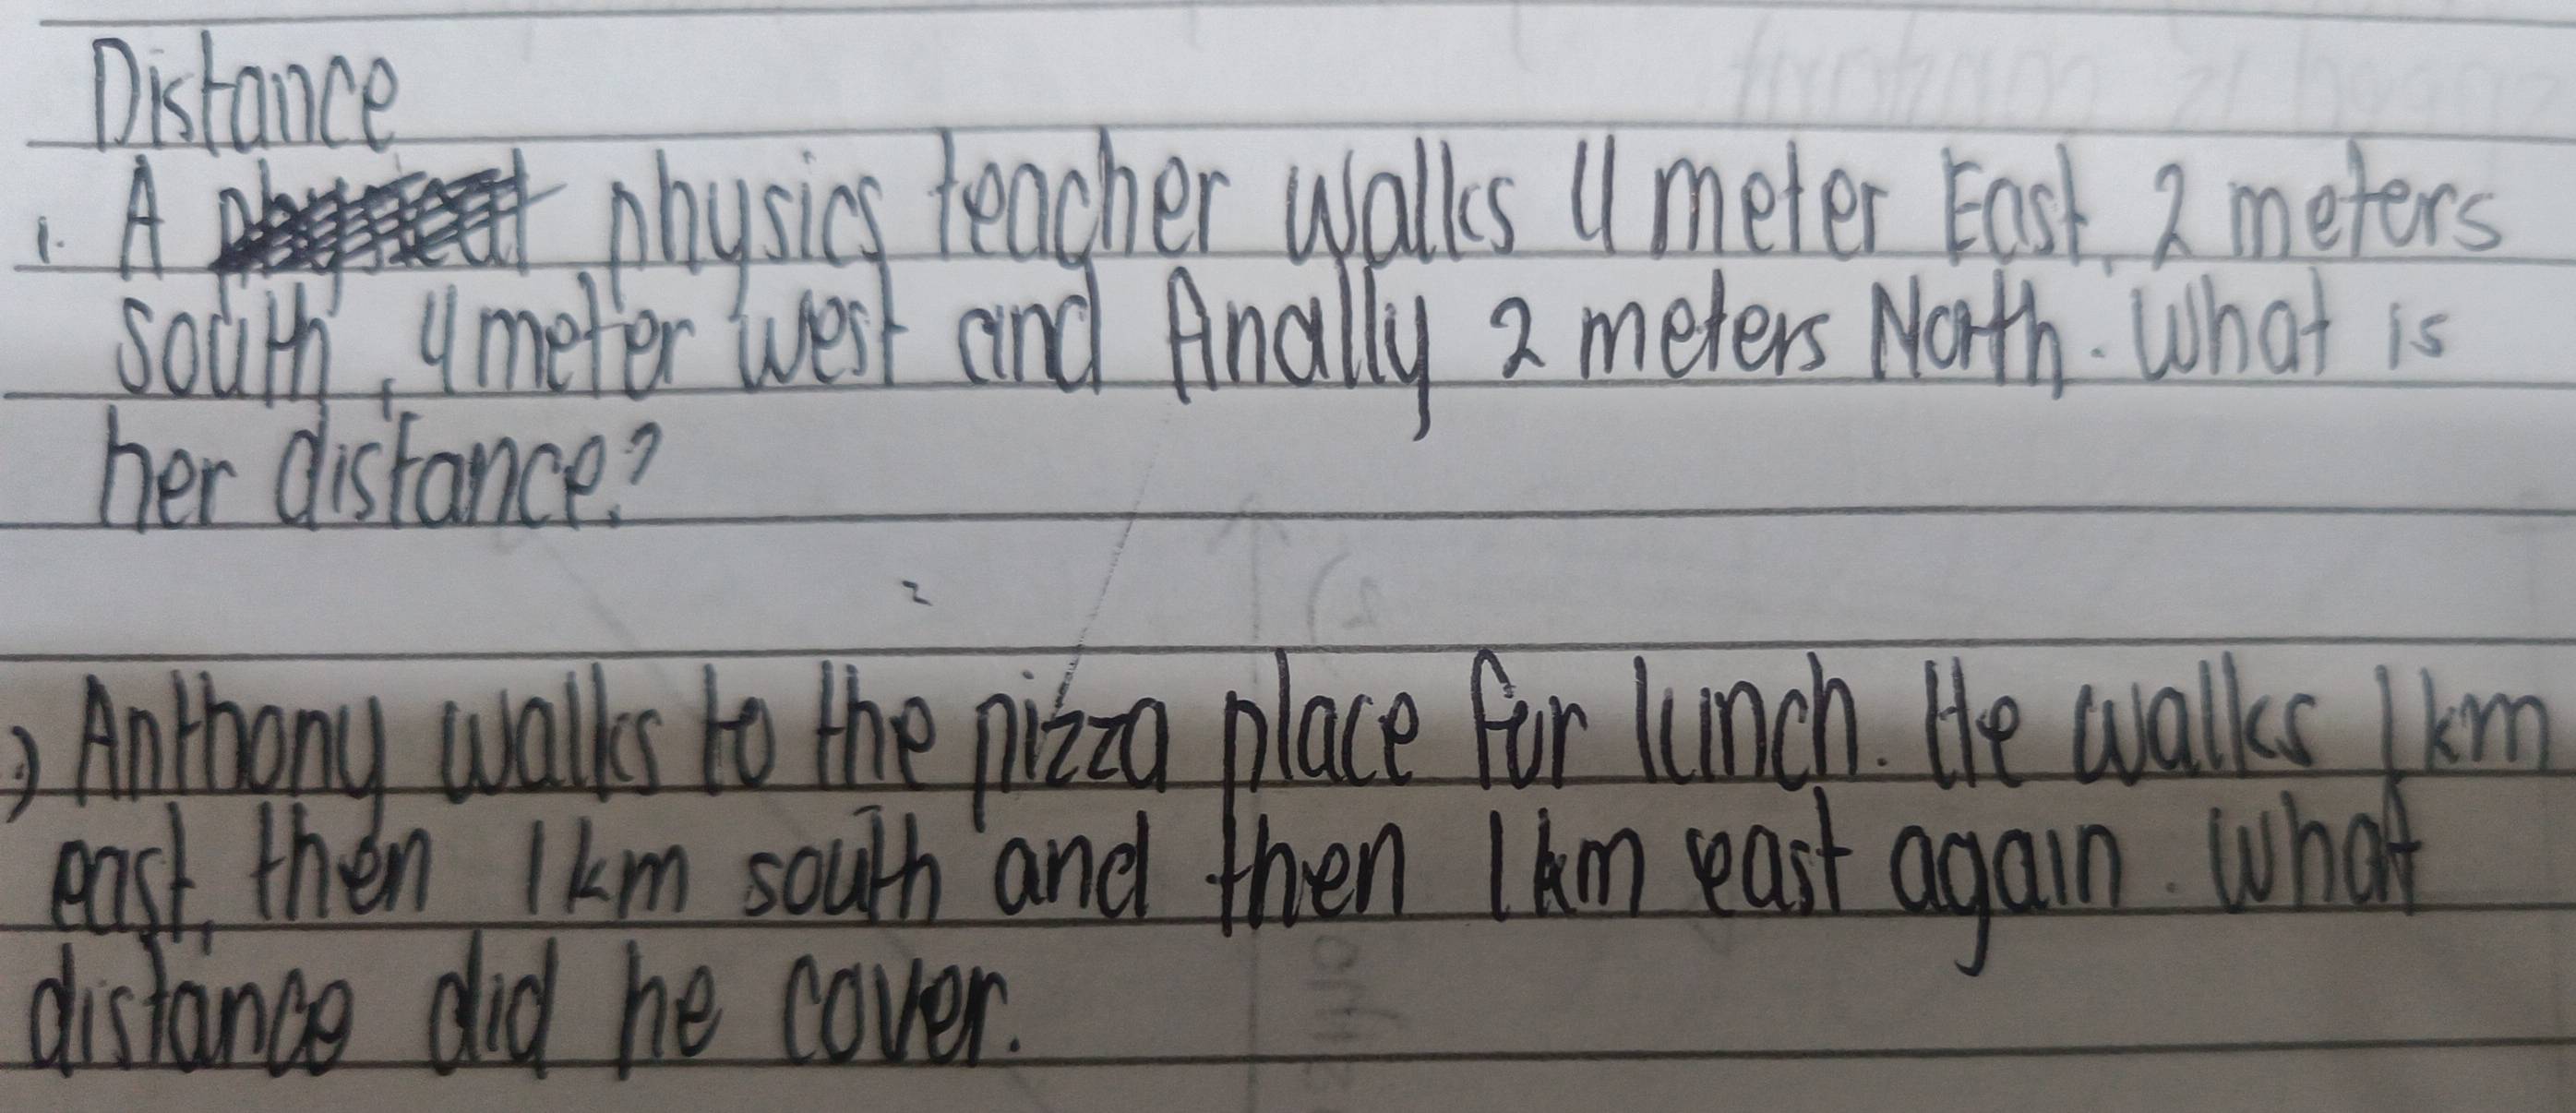 Distance
1. A physics teacher walks 4 meter East, 2 meters
south, 4 meter west and finally 2 meters North. What is
her distance?
2
) Anthony walks to the pizza place for lunch. He walks 1 km
east, then 1 km south and then 1 km east again. What
distance did he cover.